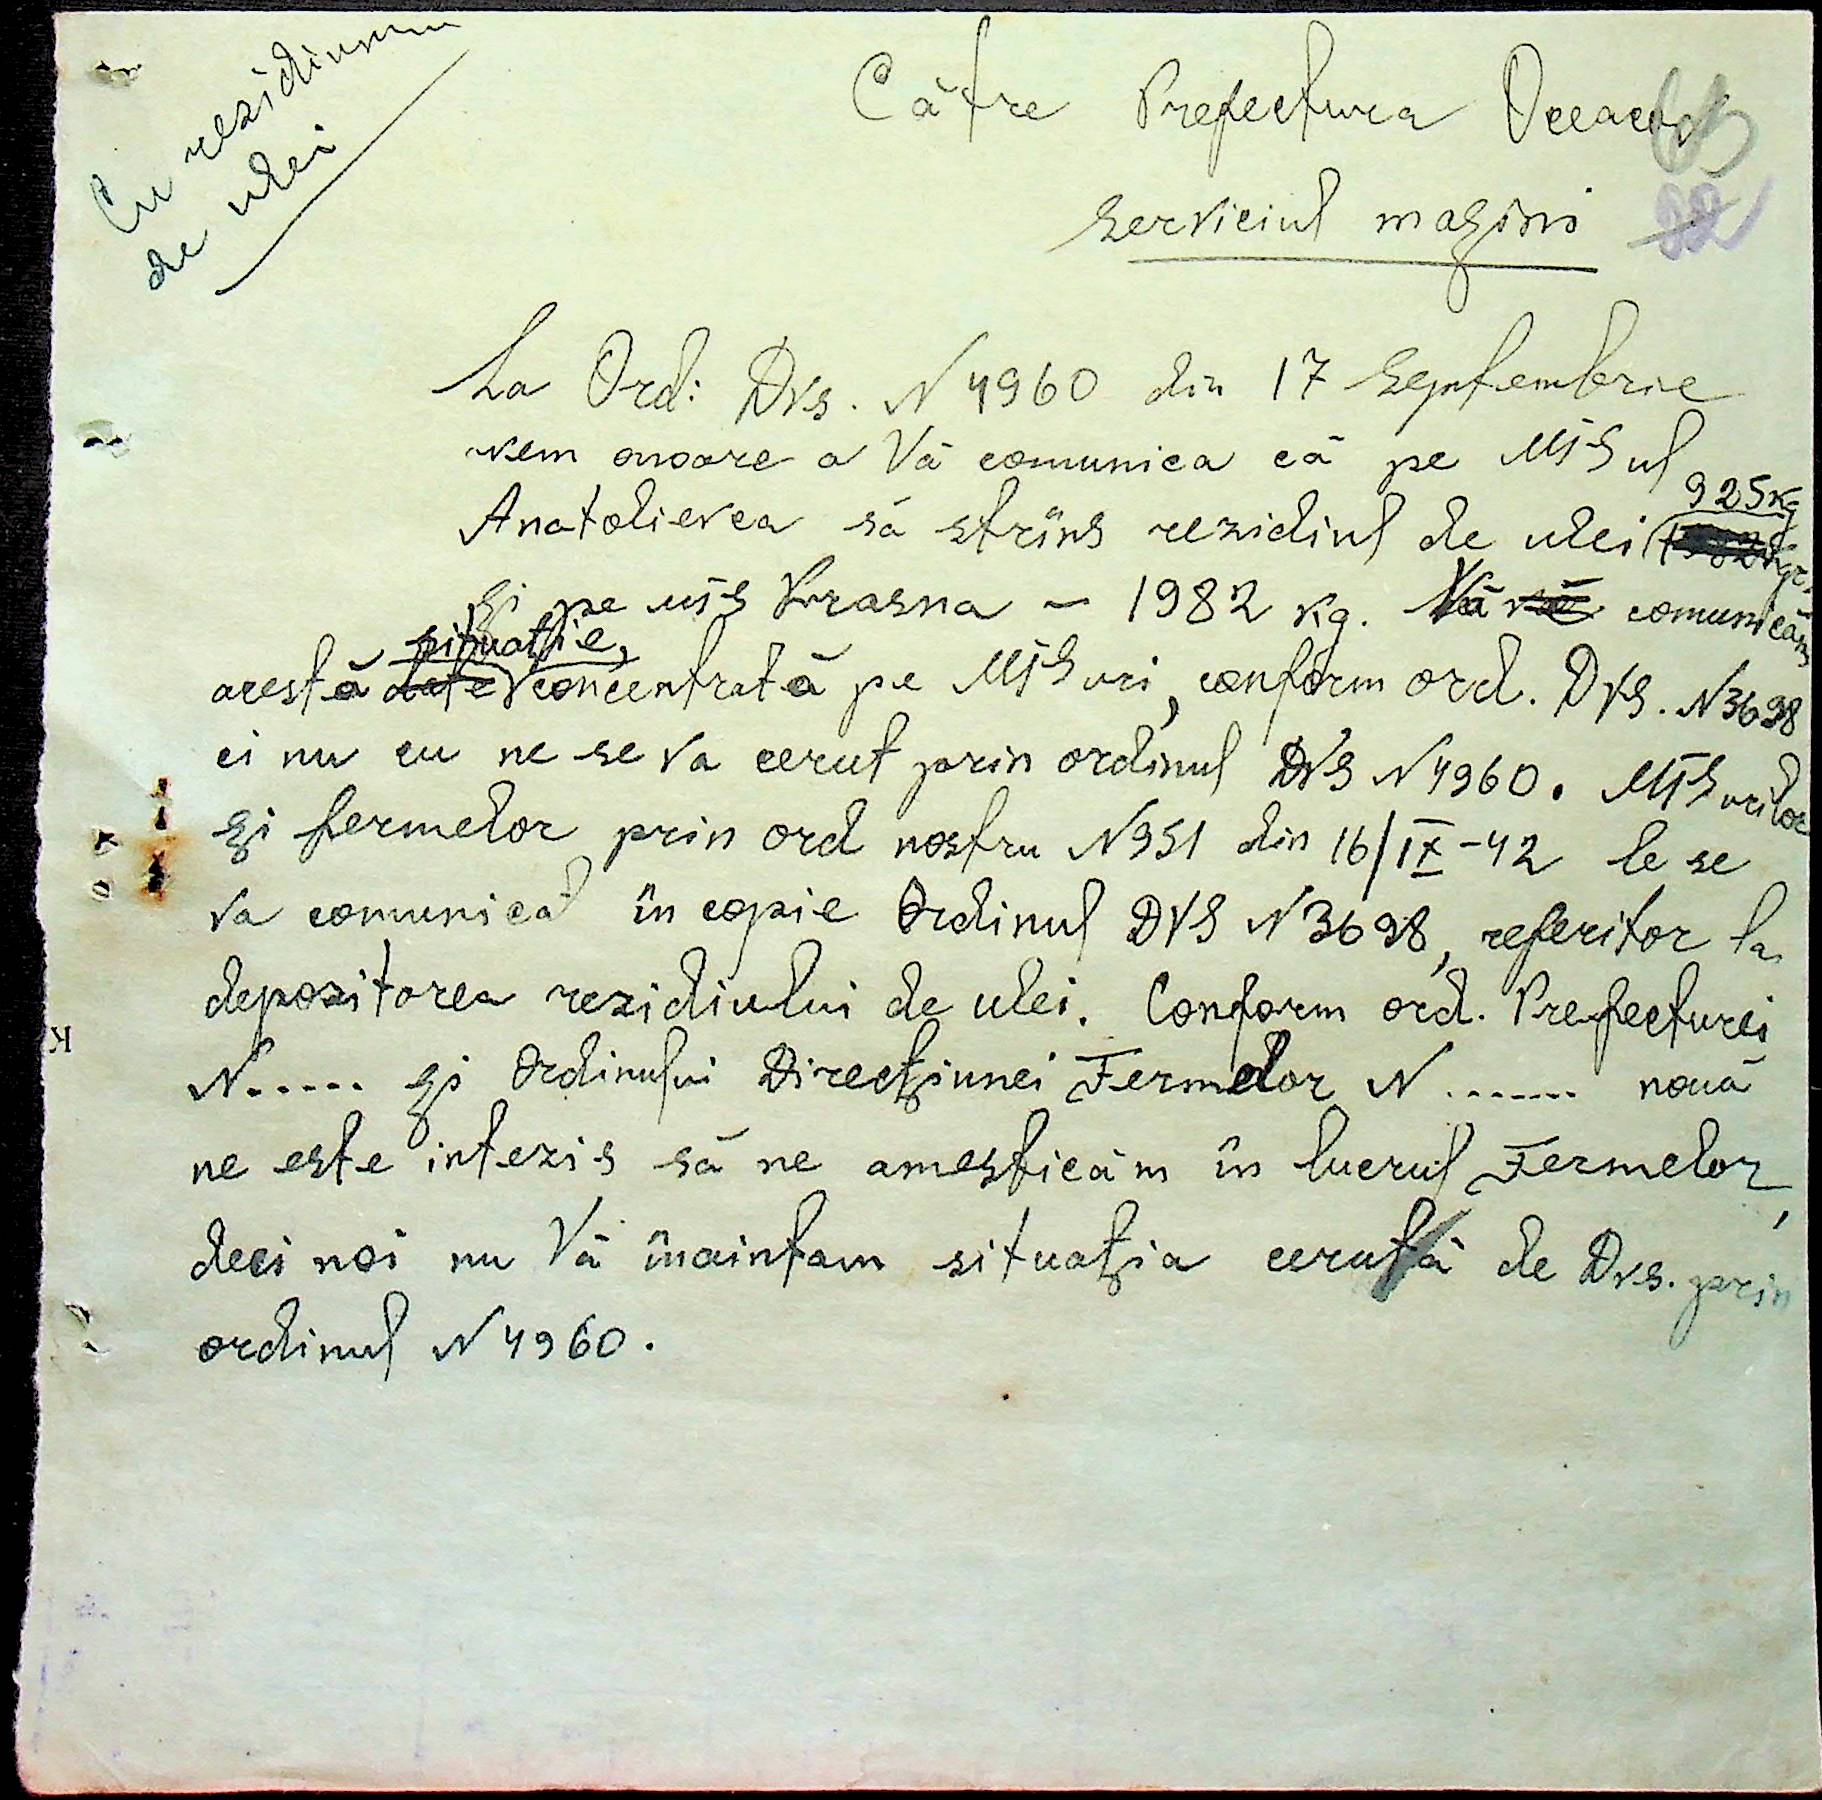 Cu rezidiunm
de ulei
Către Prefectura Oceacov
63
Serviciul mașini
92
La Ord: Dvs. N 4960 din 17 Septembrie
vem onoare a Vă comunica că pe MTS ul
925 Kg
Anatolievca să strîns rezidiul de ulei
și pe MTS Krasna - 1982 kg. Vă comunicăm
situatie,
arestă date concentrată pe MTS uri, conform ord. DVS. N 3698
ci nu cu ne se va cerut prin ordinul DVS N 4960. MTS urilor
și fermelor prin ord nostru N 951 din 16/IX-42 le se
va comunică în copie Ordinul DVS N 3698, referitor la
depozitarea rezidiului de ulei. Conform ord. Prefecturei
N...... și Ordinului Direcțiunei Fermelor N ....... nouă
ne este intezis să ne amesticăm în lucrul Fermelor,
deci noi nu Vă înaintam situația cerută de Dvs. prin
ordinul N 4960.